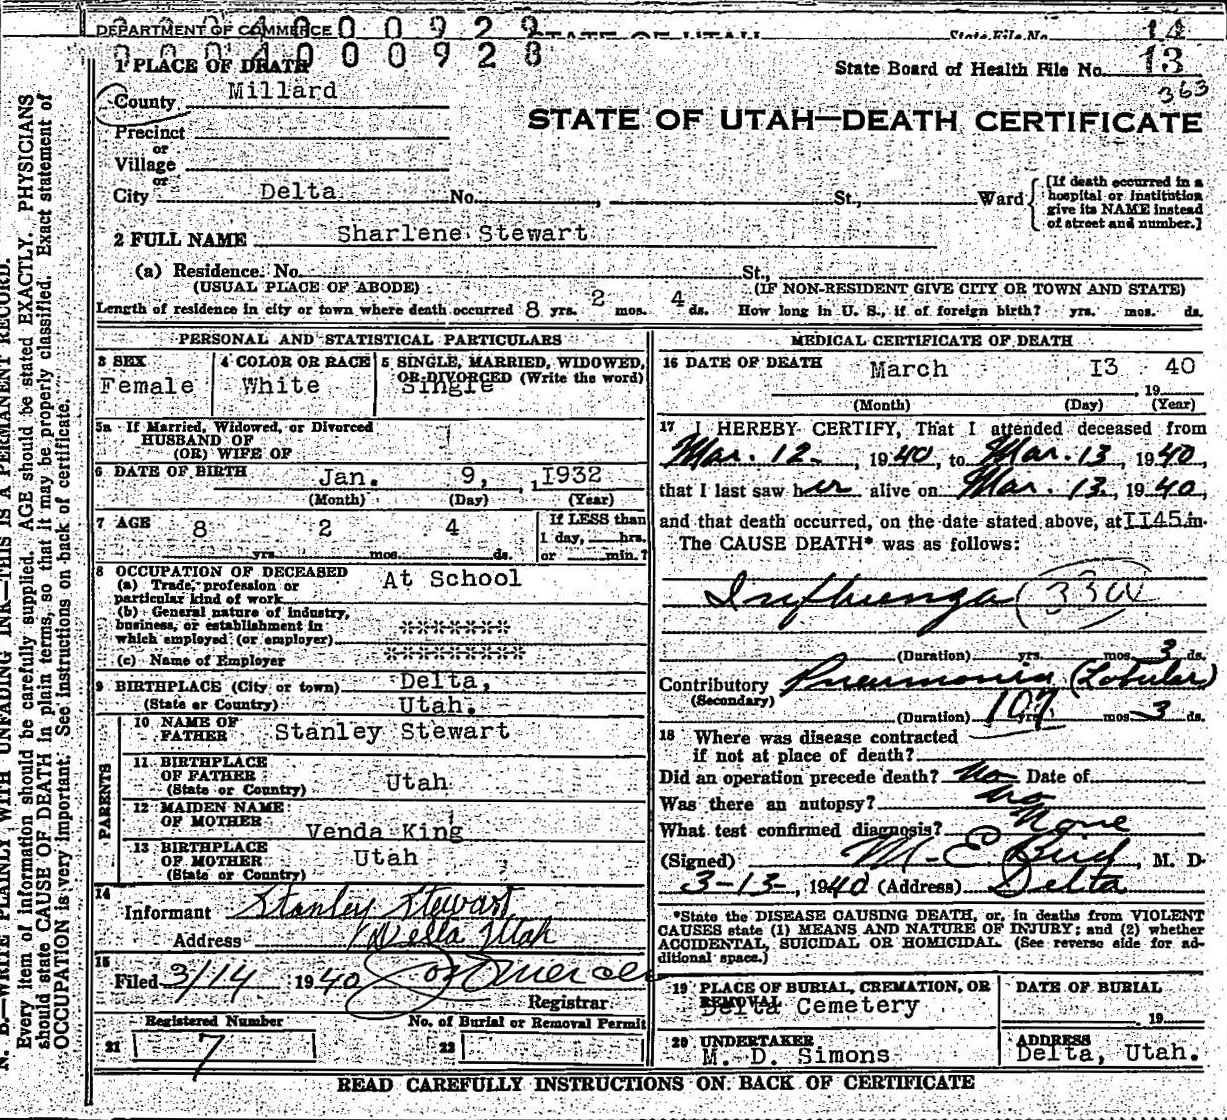 DEPARTMENT OF COMMERCE 0 0 0 9 2 9 STATE OF UTAH State File No. 14
0 0 0 4 0 0 0 9 2 8
1 PLACE OF DEATH State Board of Health File No. 13
County Millard 363
STATE OF UTAH—DEATH CERTIFICATE
Precinct
or
Village
or
City Delta No. , St., Ward
[If death occurred in a
hospital or institution
give its NAME instead
of street and number.]
2 FULL NAME Sharlene Stewart
(a) Residence. No. St.,
(USUAL PLACE OF ABODE) (IF NON-RESIDENT GIVE CITY OR TOWN AND STATE)
Length of residence in city or town where death occurred 8 yrs. 2 mos. 4 ds. How long in U. S., if of foreign birth? yrs. mos. ds.
PERSONAL AND STATISTICAL PARTICULARS
3 SEX
Female
4 COLOR OR RACE
White
5 SINGLE, MARRIED, WIDOWED,
OR DIVORCED (Write the word)
Single
5a If Married, Widowed, or Divorced
HUSBAND OF
(OR) WIFE OF
6 DATE OF BIRTH Jan. 9, 1932
(Month) (Day) (Year)
7 AGE 8 2 4
yrs. mos. ds.
If LESS than
1 day, hrs.
or min.?
8 OCCUPATION OF DECEASED
(a) Trade, profession or
particular kind of work At School
(b) General nature of industry,
business, or establishment in
which employed (or employer) ********
(c) Name of Employer **********
9 BIRTHPLACE (City or town) Delta,
(State or Country) Utah.
PARENTS
10 NAME OF
FATHER Stanley Stewart
11 BIRTHPLACE
OF FATHER Utah
(State or Country)
12 MAIDEN NAME
OF MOTHER Venda King
13 BIRTHPLACE
OF MOTHER Utah
(State or Country)
14
Informant Stanley Stewart
Address Delta Utah
15
Filed 3/14 1940
Registrar
Registered Number
21 7
No. of Burial or Removal Permit
22
MEDICAL CERTIFICATE OF DEATH
16 DATE OF DEATH March 13 40
, 19
(Month) (Day) (Year)
17 I HEREBY CERTIFY, That I attended deceased from
Mar. 12, 1940, to Mar. 13, 1940,
that I last saw her alive on Mar. 13, 1940,
and that death occurred, on the date stated above, at 1145 m.
The CAUSE DEATH* was as follows:
Influenza
(Duration) yrs. mos. 3 ds.
Contributory Pneumonia (Lobular)
(Secondary)
107
(Duration) yrs. mos. 3 ds.
18 Where was disease contracted
if not at place of death?
Did an operation precede death? No Date of
Was there an autopsy? No
What test confirmed diagnosis? None
(Signed) M. E. Bird, M. D.
3-13-, 1940 (Address) Delta
*State the DISEASE CAUSING DEATH, or, in deaths from VIOLENT
CAUSES state (1) MEANS AND NATURE OF INJURY; and (2) whether
ACCIDENTAL, SUICIDAL OR HOMICIDAL. (See reverse side for ad-
ditional space.)
19 PLACE OF BURIAL, CREMATION, OR
REMOVAL
Delta Cemetery
DATE OF BURIAL
, 19
20 UNDERTAKER
M. D. Simons
ADDRESS
Delta, Utah.
READ CAREFULLY INSTRUCTIONS ON BACK OF CERTIFICATE
N. B.—WRITE PLAINLY WITH UNFADING INK—THIS IS A PERMANENT RECORD.
Every item of information should be carefully supplied. AGE should be stated EXACTLY. PHYSICIANS
should state CAUSE OF DEATH in plain terms, so that it may be properly classified. Exact statement of
OCCUPATION is very important. See instructions on back of certificate.